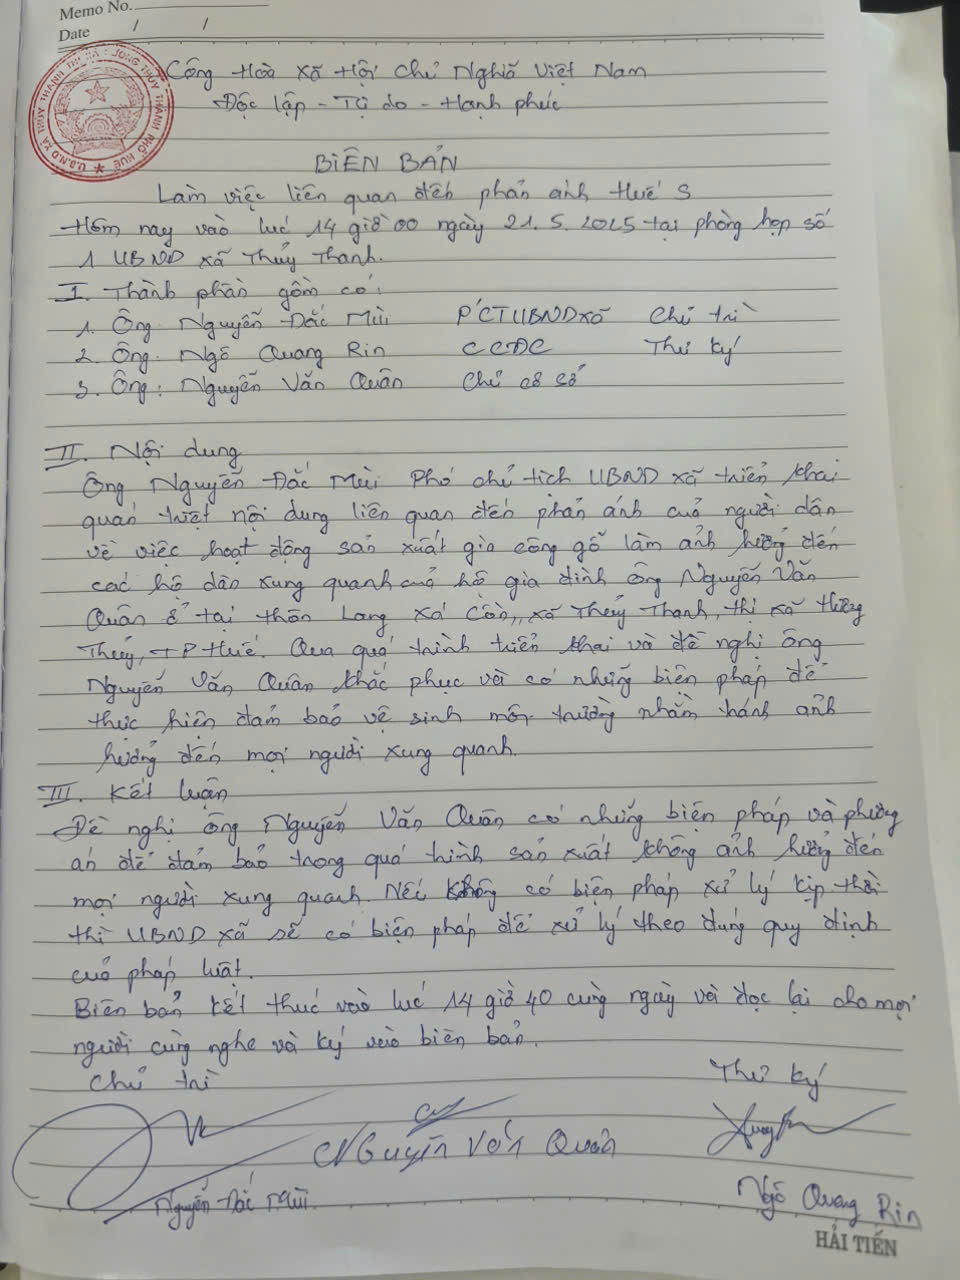 Memo No.
Date / /
Cộng Hòa Xã Hội Chủ Nghĩa Việt Nam
Độc lập - Tự do - Hạnh phúc
BIÊN BẢN
Làm việc liên quan đến phản ánh Huế S
Hôm nay vào lúc 14 giờ 00 ngày 21.5.2025 tại phòng họp số
1 UBND xã Thủy Thanh.
I. Thành phần gồm có:
1. Ông Nguyễn Đắc Mùi PCTUBND xã Chủ trì
2. Ông: Ngô Quang Rin CCĐC Thư ký
3. Ông: Nguyễn Văn Quân Chủ cơ sở
II. Nội dung
Ông Nguyễn Đắc Mùi Phó chủ tịch UBND xã triển khai
quán triệt nội dung liên quan đến phản ánh của người dân
về việc hoạt động sản xuất gia công gỗ làm ảnh hưởng đến
các hộ dân xung quanh của hộ gia đình ông Nguyễn Văn
Quân ở tại thôn Lang Xá Cồn, xã Thủy Thanh, thị xã Hương
Thủy, TP Huế. Qua quá trình triển khai và đề nghị ông
Nguyễn Văn Quân khắc phục và có những biện pháp để
thực hiện đảm bảo vệ sinh môi trường nhằm tránh ảnh
hưởng đến mọi người xung quanh.
III. Kết luận
Đề nghị ông Nguyễn Văn Quân có những biện pháp và phương
án để đảm bảo trong quá trình sản xuất không ảnh hưởng đến
mọi người xung quanh. Nếu không có biện pháp xử lý kịp thời
thì UBND xã sẽ có biện pháp để xử lý theo đúng quy định
của pháp luật.
Biên bản kết thúc vào lúc 14 giờ 40 cùng ngày và đọc lại cho mọi
người cùng nghe và ký vào biên bản.
Chủ trì Thư ký
Nguyễn Văn Quân
Nguyễn Đắc Mùi Ngô Quang Rin
HẢI TIẾN